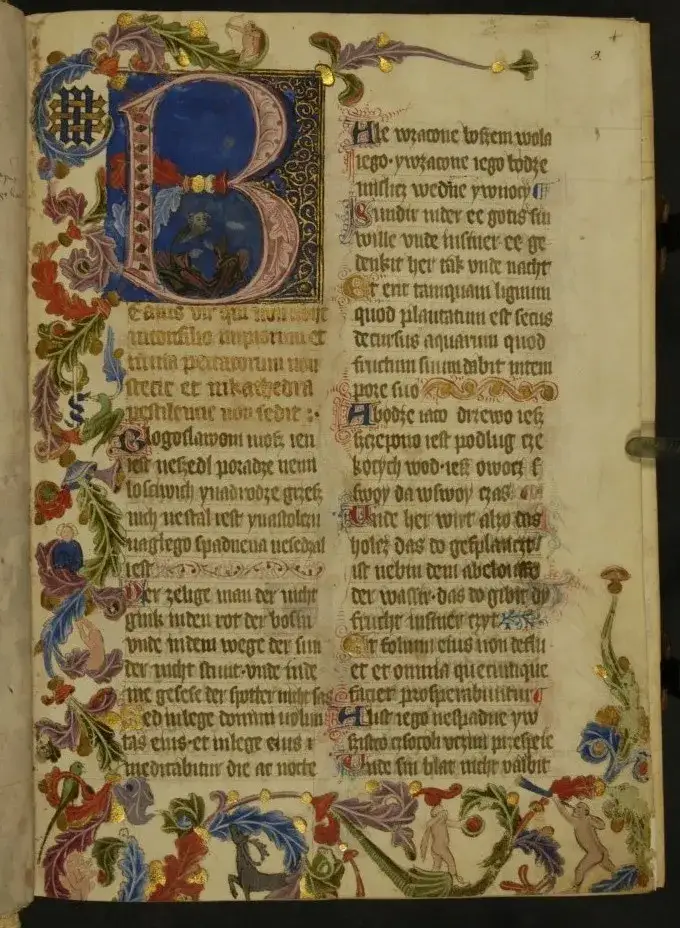 B
eatus vir qui non abyt
in consilio impiorum et
in uia peccatorum non
stetit et in kathedra
pestilencie non sedit :·
Blogoslawoni mosz ien
iest neszedl poradze nemi
losciwich ynadrodze grzesz
nich nestal iest ynastolczu
naglego spadnena nesedzal
iest
Der zelige man der nicht
gink inden rot der bosin
vnde indem wege der sun
der nicht stunt· vnde inde
me gesese der spotter nicht sas
Sed inlege domini uolun
tas eius· et inlege eius
meditabitur die ac nocte
Ale wzacone boszem wola
iego· ywzacone iego bodze
mislicz wedne ywnocy
Sundir inder ee gotis sin
wille vnde insiner ee ge
denkit her tak vnde nacht
Et erit tamquam lignum
quod plantatum est secus
decursus aquarum quod
fructum suum dabit intem
pore suo
Abodze iaco drzewo iesz
szczepono iest podlug cze
kocych wod· iesz owocz s
swoy da wswoy czas
Vnde her wirt alzo das
holcz das do gesplanczt
ist nebin dem
der wassir· das do gibit
frucht insiner czyt
Et folium eius non deflu
et et omnia quecunque
faciet prosperabuntur
Alist iego nespadne yw
uczini przespeie
Vnde sin blat nicht